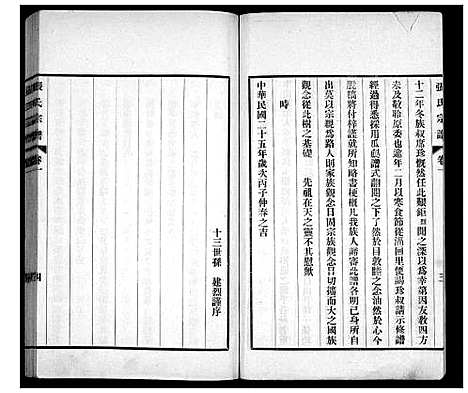 張氏宗譜 卷一 三
十二年冬族叔席珍慨然任此艱鉅烈聞之深以爲幸第因友教四方
未及敬聆原委也逾年二月以寒食節從漢回里便謁珍叔請示修譜
經過得悉採用瓜瓞譜式翻閱之下了然於目敦睦之念油然於心今
脫稿將付梓謹就所知略書梗概凡我族人諦審此譜各明己身所自
出莫以宗親爲路人則家族觀念日固宗族觀念日切擴而大之國族
觀念從此樹之基礎 先祖在天之靈不其同慰歟
時
中華民國二十五年歲次丙子仲春之吉
十三世孫 建烈謹序
張氏宗譜 卷一 四